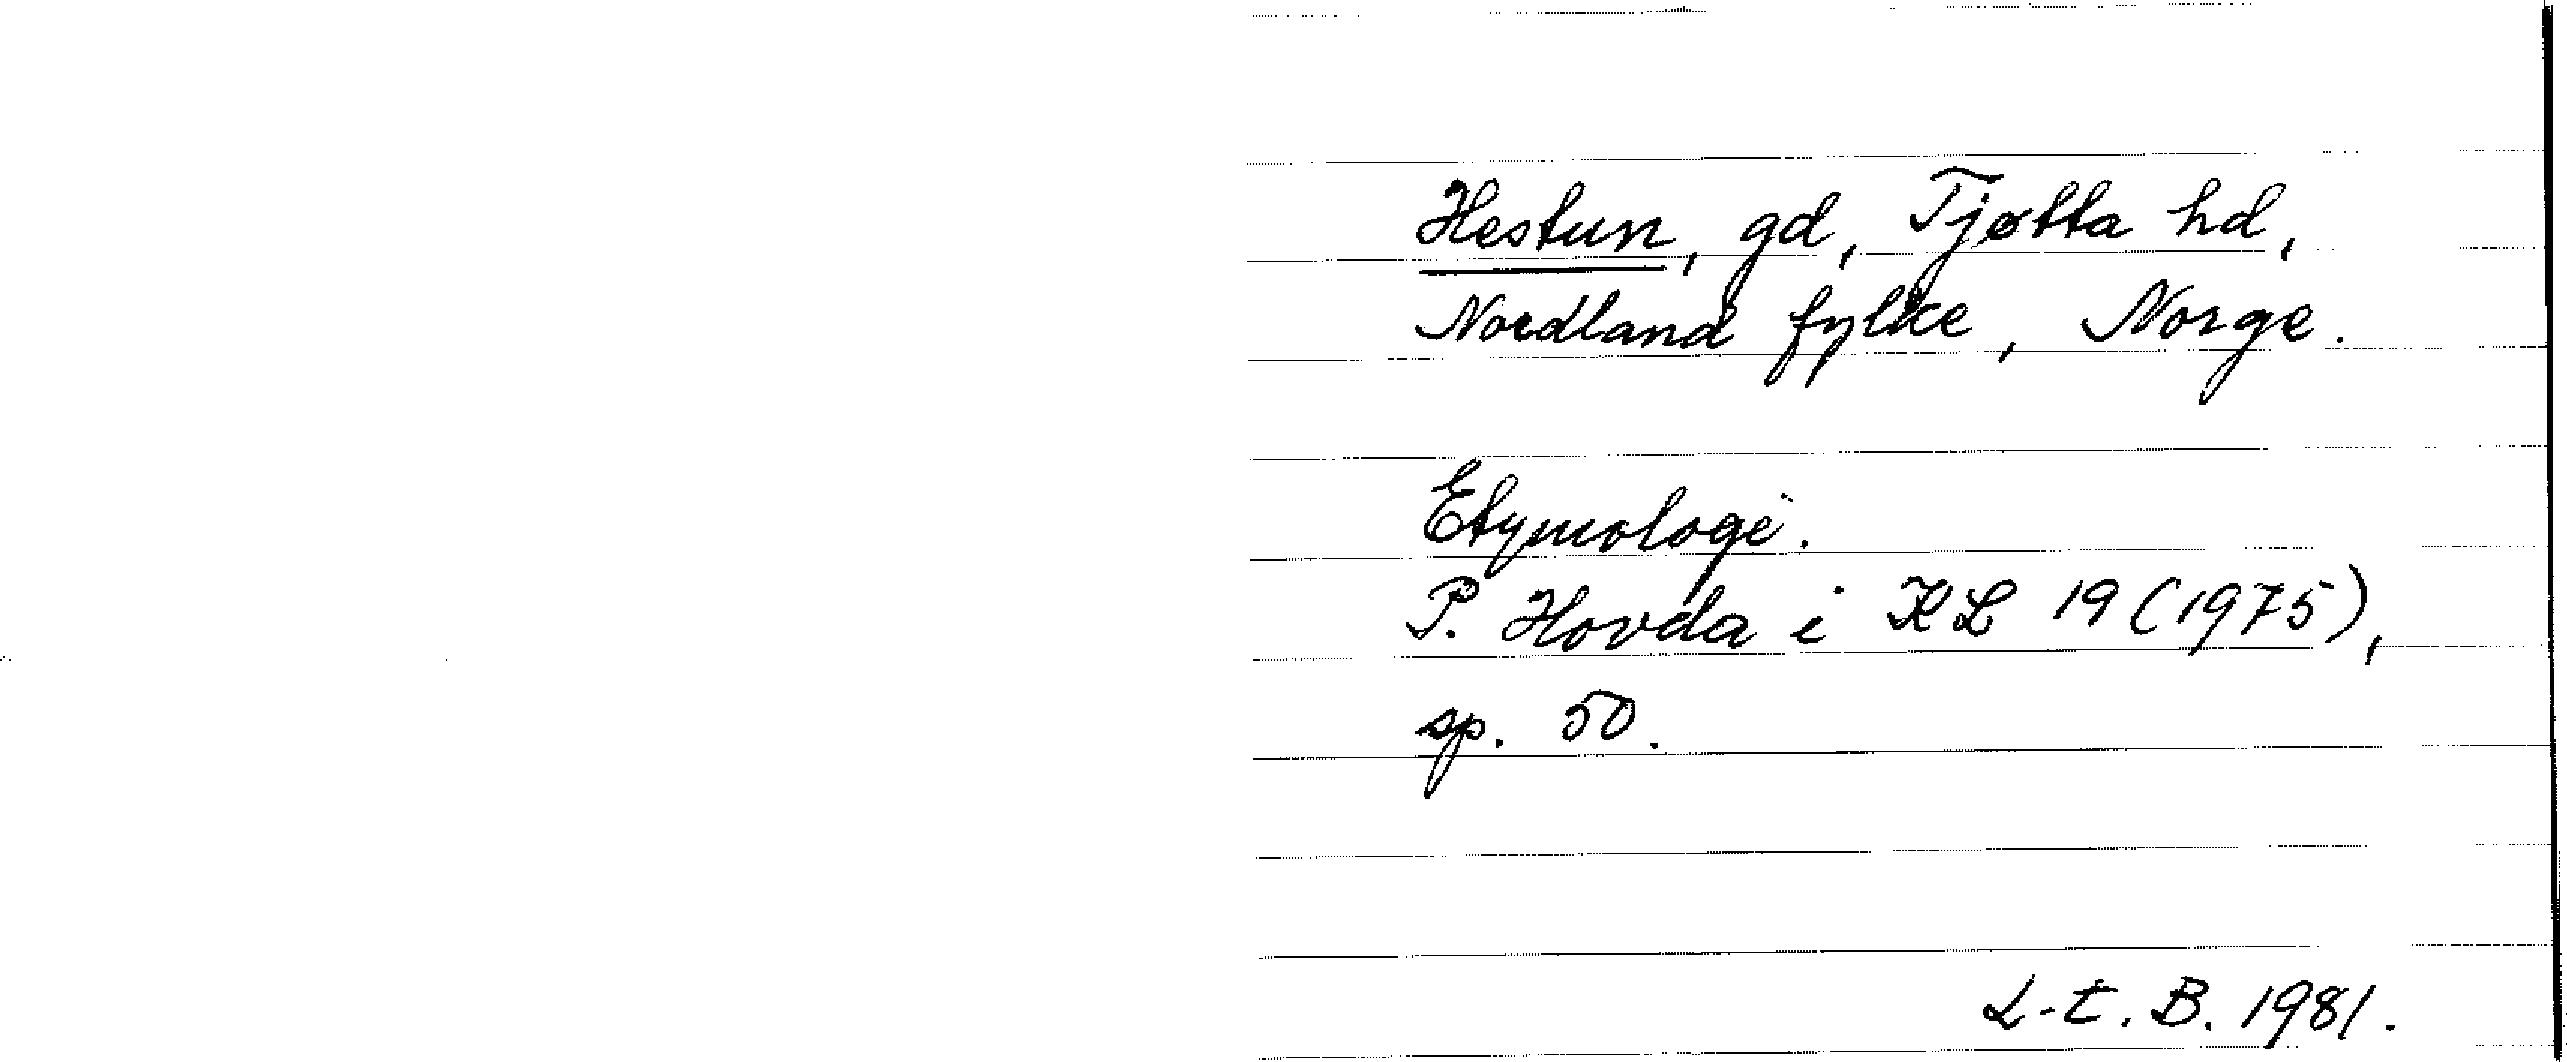 Hestun, gd, Tjøtta hd,
Nordland fylke, Norge.
Etymologi.
P. Hovda i KL 19 (1975),
sp. 50.
L-E. B. 1981.